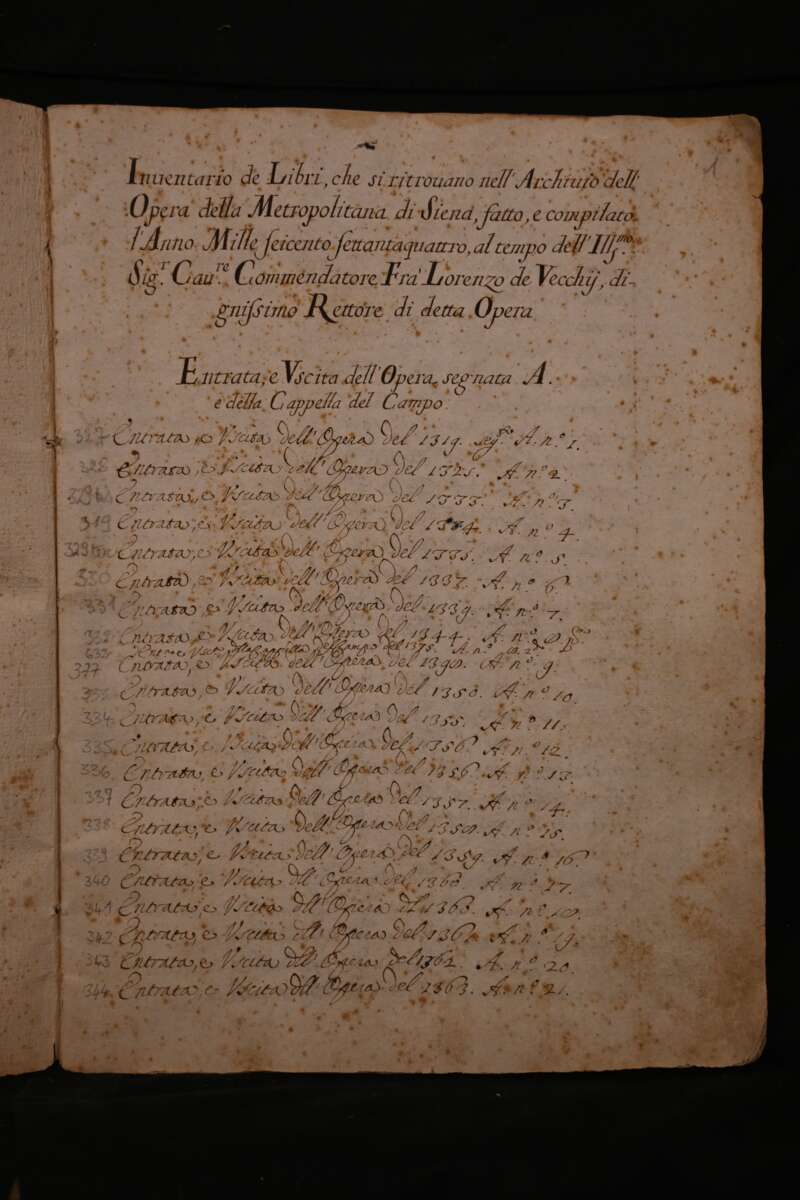 1
Inuentario de Libri, che si ritrouano nell' Archiuio dell'
Opera della Metropolitana di Siena, fatto, e compilato
l'Anno Mille seicento settantaquattro, al tempo dell' Ill.mo
Sig.r Cau.re Commendatore Fra Lorenzo de Vecchij, di-
gnissimo Rettore di detta Opera
Entrata, e Vscita dell' Opera, segnata A.
e della Cappella del Campo
Entrata, e Vscita dell' Opera del 1319. seg.ta A. n.o 1.
Entrata, e Vscita dell' Opera del A. n.o 2.
Entrata, e Vscita dell' Opera del A. n.o 3.
349 Entrata, e Vscita dell' Opera del A. n.o 4.
Entrata, e Vscita dell' Opera del A. n.o 5.
330 Entrata, e Vscita dell' Opera del 1337. A. n.o 6.
331 Entrata, e Vscita dell' Opera del 1339. A. n.o 7.
332 Entrata, e Vscita dell' Opera del 1344. A. n.o
Entrata, e Vscita dell' Opera, del A. n.o 9.
Entrata, e Vscita dell' Opera del A. n.o 10.
334 Entrata, e Vscita dell' Opera del A. n.o 11.
335 Entrata, e Vscita dell' Opera del 1356 A. n.o 12.
336 Entrata, e Vscita dell' Opera del 1356. A. n.o 13.
337 Entrata, e Vscita dell' Opera del 1357. A. n.o 14.
338 Entrata, e Vscita dell' Opera del A. n.o 15.
339 Entrata, e Vscita dell' Opera del 1359. A. n.o 16.
340 Entrata, e Vscita dell' Opera del A. n.o 17.
341 Entrata, e Vscita dell' Opera del A. n.o
342 Entrata, e Vscita dell' Opera del A. n.o 19.
343 Entrata, e Vscita dell' Opera del 1362. A. n.o 20.
344 Entrata, e Vscita dell' Opera del 1363. A. n.o 21.